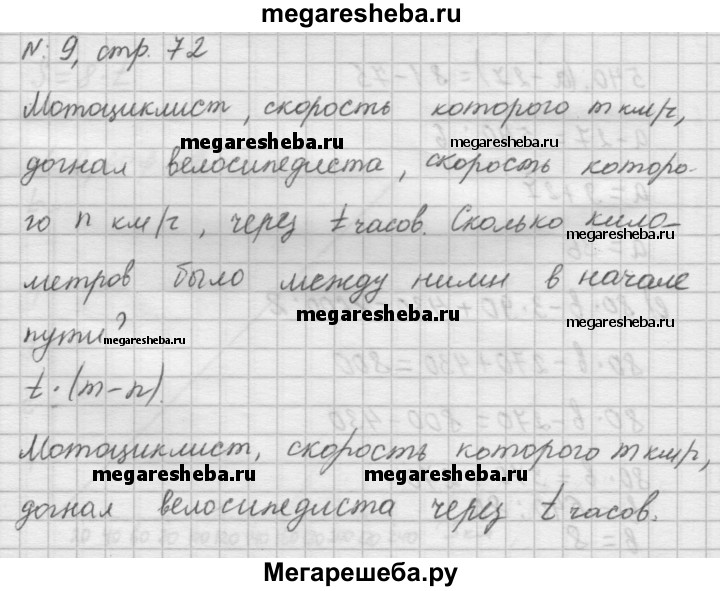 megaresheba.ru
N: 9, стр. 72
Мотоциклист, скорость которого m км/ч,
megaresheba.ru megaresheba.ru
догнал велосипедиста, скорость которо-
го n км/ч, через t часов. Сколько кило-
megaresheba.ru
метров было между ними в начале
megaresheba.ru megaresheba.ru
пути?
megaresheba.ru
t·(m-n).
Мотоциклист, скорость которого m км/ч,
megaresheba.ru megaresheba.ru
догнал велосипедиста через t часов.
Мегарешеба.ру